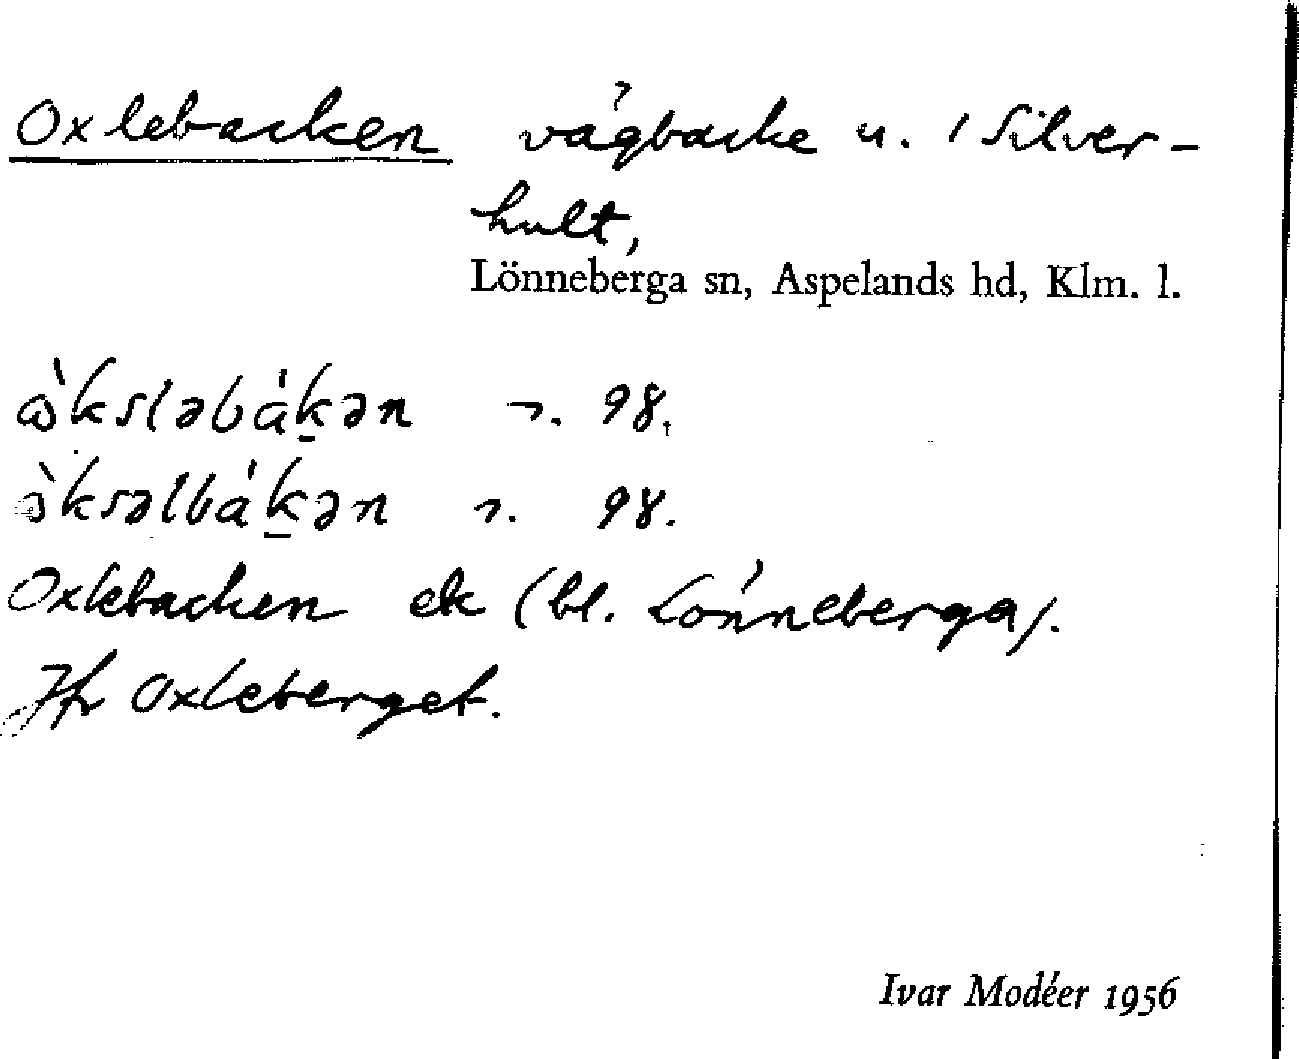 Oxlebacken vägbacke u. 1 Silver-
hult,
Lönneberga sn, Aspelands hd, Klm. l.
98.
98.
Oxlebacken ek (bl. Lönneberga).
Jfr Oxleberget.
Ivar Modéer 1956